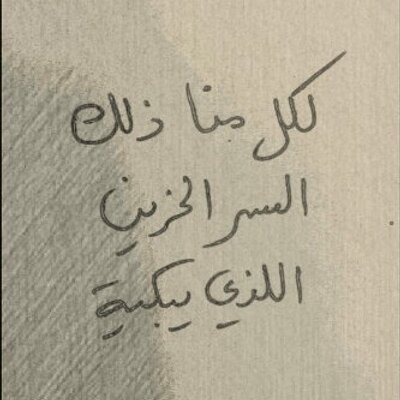 لكل منا ذلك
السر الحزين
اللذي يبكية